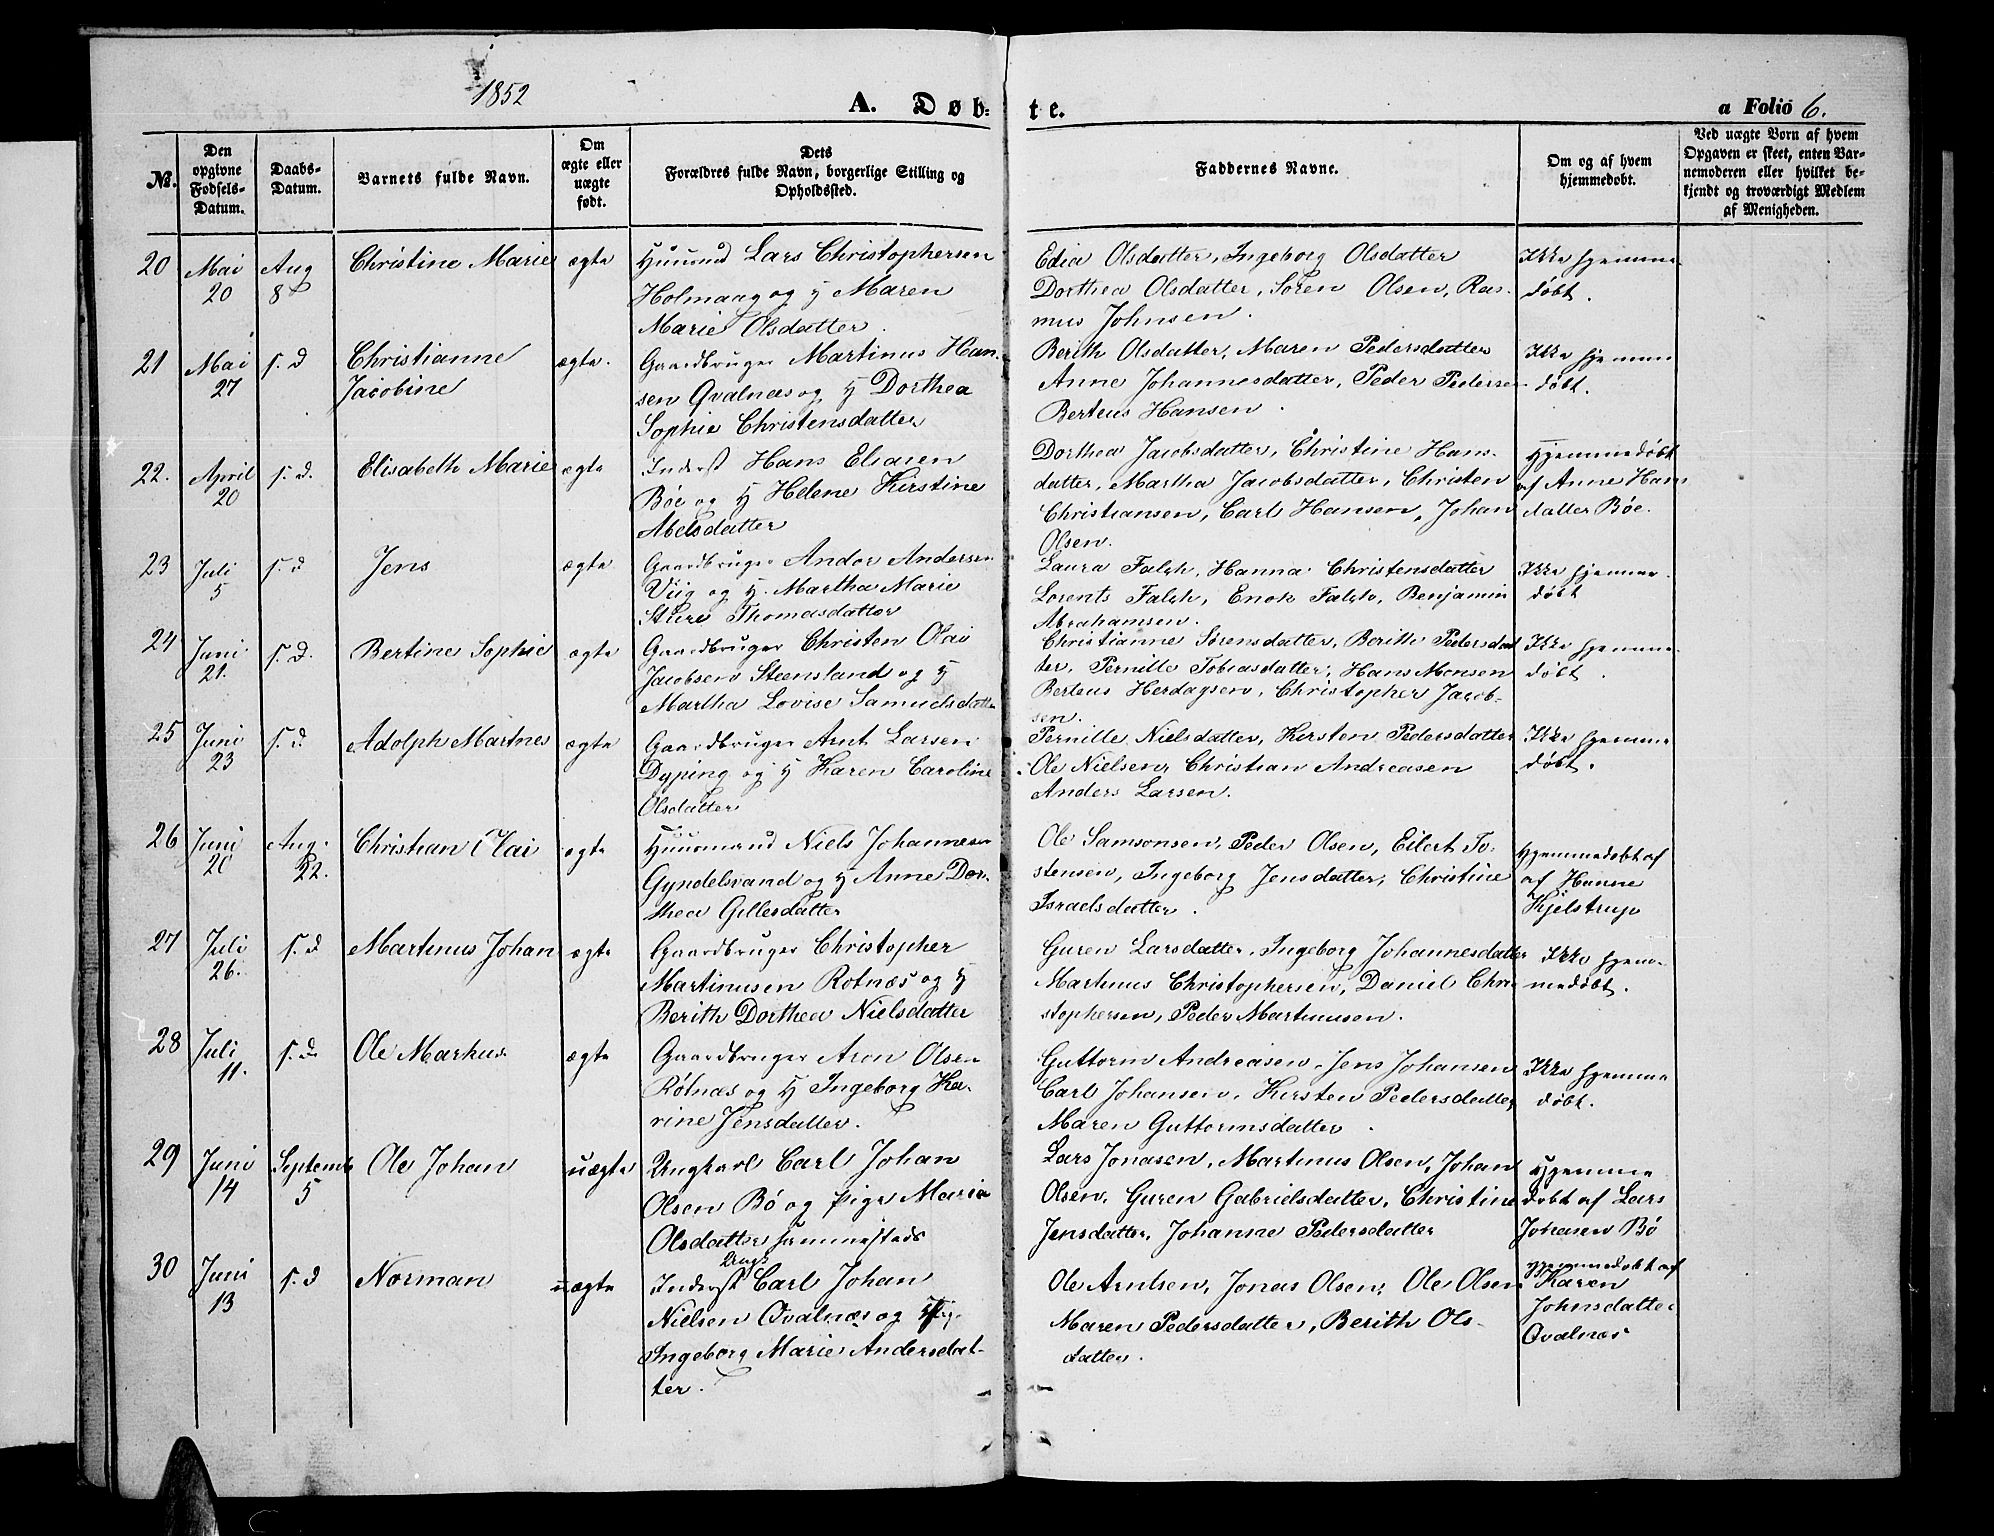 1852
A. Døb-
te.
a Folio 6.
No.
Den
opgivne
Fødsels-
Datum.
Daabs-
Datum.
Barnets fulde Navn.
Om
ægte eller
uægte
født.
Dets
Forældres fulde Navn, borgerlige Stilling og
Opholdssted.
Faddernes Navne.
Om og af hvem
hjemmedøbt.
Ved uægte Børn af hvem
Opgaven er skeet, enten Bar-
nemoderen eller hvilket be-
kjendt og troværdigt Medlem
af Menigheden.
20 Mai 20 Aug 8 Christine Marie ægte
Huusmd Lars Christophersen
Holmaag og H Maren
Marie Olsdatter.
Edia Olsdatter, Ingeborg Olsdatter
Dorthea Olsdatter, Soren Olsen, Ras-
mus Johnsen.
Ikke hjemme-
døbt.
21 Mai 27 s. d Christianne
Jacobine
ægte.
Gaardbruger Martinus Han-
sen Qvalnæs og H Dorthea
Sophie Christensdatter
Berith Olsdatter, Maren Pedersdatter
Anne Johannesdatter, Peder Pedersen
Berteus Hansen.
Ikke hjemme
døbt.
22. April 20 s. d. Elisabeth Marie ægte
Inderst Hans Eliasen
Bøe og H Helene Kirstine
Abelsdatter
Dorthea Jacobsdatter, Christine Hans-
datter, Martha Jacobsdatter, Christen
Christiansen, Carl Hansen, Johan
Olsen.
Hjemmedøbt
af Anne Hans
datter Bøe.
23 Juli 5 s. d Jens ægte
Gaardbruger Andor Andersen
Viig og H. Martha Marie
Sture Thomasdatter
Laura Falch, Hanna Christensdatter
Lorents Falch, Enok Falch, Benjamin
Abrahamsen.
Ikke hjemme-
døbt
24 Juni 21. s. d. Bertine Sophie ægte
Gaardbruger Christen Olai
Jacobsen Steensland og H
Martha Lovise Samuelsdatter
Christianne Sørensdatter, Berith Pedersdat
ter, Pernille Tobiasdatter, Hans Monsen
Berteus Herdagsen, Christopher Jacob-
sen.
Ikke hjemme-
døbt.
25 Juni 23 s. d. Adolph Martnes ægte
Gaardbruger Arnt Larsen
Dyping og H Karen Caroline
Olsdatter
Pernille Nielsdatter, Kirsten Pedersdatter
Ole Nielsen, Christian Andreasen
Anders Larsen.
Ikke hjemme
døbt.
26 Juni 20 Aug. 22. Christian Olai ægte
Huusmand Niels Johannesen
Gyndelsvand og H Anne Dor-
thea Gillesdatter
Ole Samsonsen, Peder Olsen, Eilert To-
stensen, Ingeborg Jensdatter, Christine
Israelsdatter.
Hjemmedøbt af
af Hanne
Kjelstrup
27 Juli 26. s. d Martinus Johan ægte
Gaardbruger Christopher
Martinusen Rotnæs og H
Berith Dorthea Nielsdatter
Guren Larsdatter, Ingeborg Johannesdatter
Martinus Christophersen, Daniel Chri
stophersen, Peder Martinusen.
Ikke hjem-
medøbt.
28 Juli 11. s. d. Ole Markus ægte
Gaardbruger Aron Olsen
Røtnæs og H Ingeborg Ka-
rine Jensdatter.
Guttorm Andreasen, Jens Johansen
Carl Johansen, Kirsten Pedersdatter
Maren Guttormsdatter.
Ikke hjemme
døbt.
29 Juni 14 Septemb 5 Ole Johan uægte
Ungkarl Carl Johan
Olsen Bø og Pige Maria
Olsdatter sammesteds
Lars Jonasen, Martinus Olsen, Johan
Olsen, Guren Gabrielsdatter, Christine
Jensdatter, Johanne Pedersdatter
Hjemme
døbt af Lars
Johasen Bø
30 Juni 13 s. d Norman uægte
Ungk
Inderst Carl Johan
Nielsen Qvalnæs og Pig.
Ingeborg Marie Andersdat-
ter.
Ole Arntsen, Jonas Olsen, Ole Olsen
Maren Pedersdatter, Berith Ols-
datter.
Hjemmedøbt af
Karen
Johnsdatter
Qvalnæs